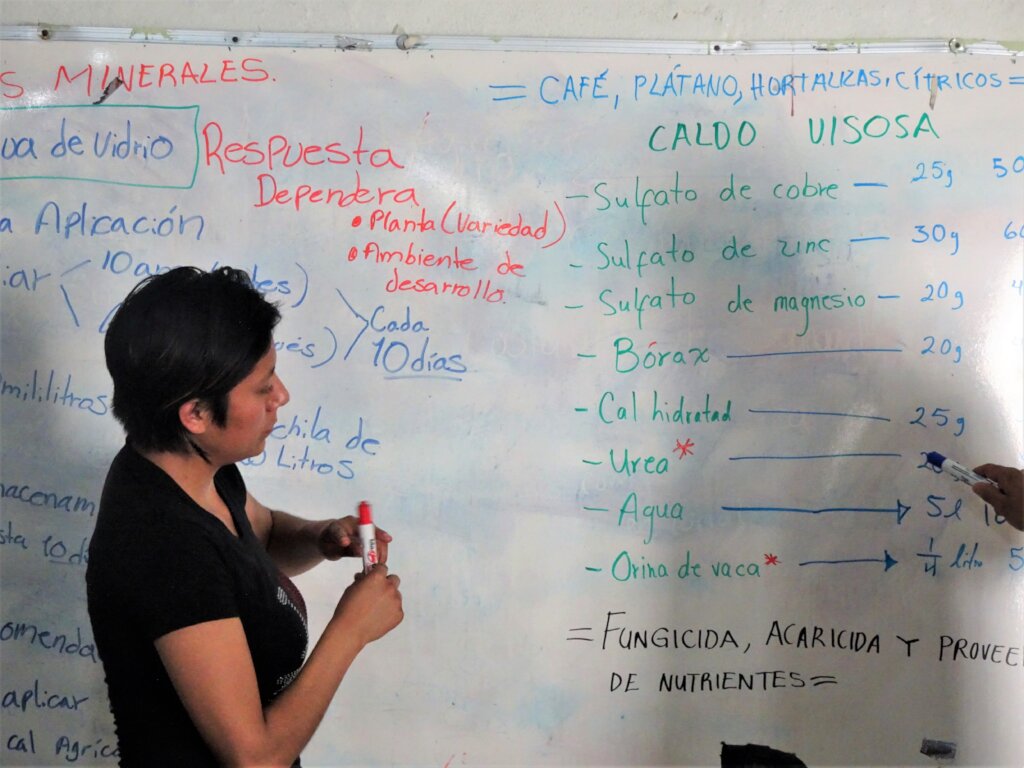 S MINERALES.
ua de Vidrio
Respuesta
Dependera
• Planta (Variedad)
• Ambiente de
desarrollo.
a Aplicación
iar
Cada
10 días
mililitros
chila de
Litros
macenam
sta 10 d
omenda
aplicar
cal Agríc
= CAFÉ, PLÁTANO, HORTALIZAS, CÍTRICOS =
CALDO VISOSA
- Sulfato de cobre — 25g 50
- Sulfato de zinc — 30g 60
- Sulfato de magnesio — 20g 4
- Bórax — 20g
- Cal hidratad — 25g
- Urea *
- Agua → 5l 10
- Orina de vaca * → 1/4 litro 5
= FUNGICIDA, ACARICIDA Y PROVEE
DE NUTRIENTES =